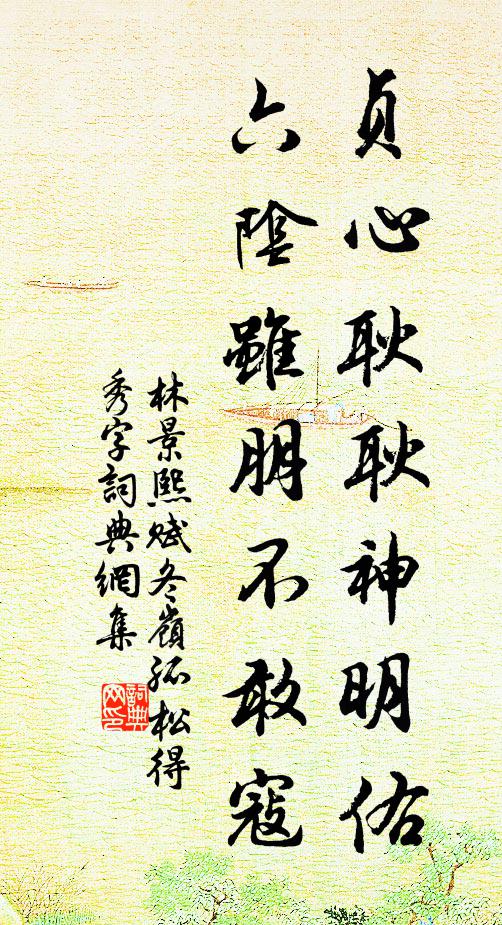 貞心耿耿神明佑
六陰雖朋不敢寇
林景熙賦冬嶺孤松得
秀字詞典網集
詞典网印